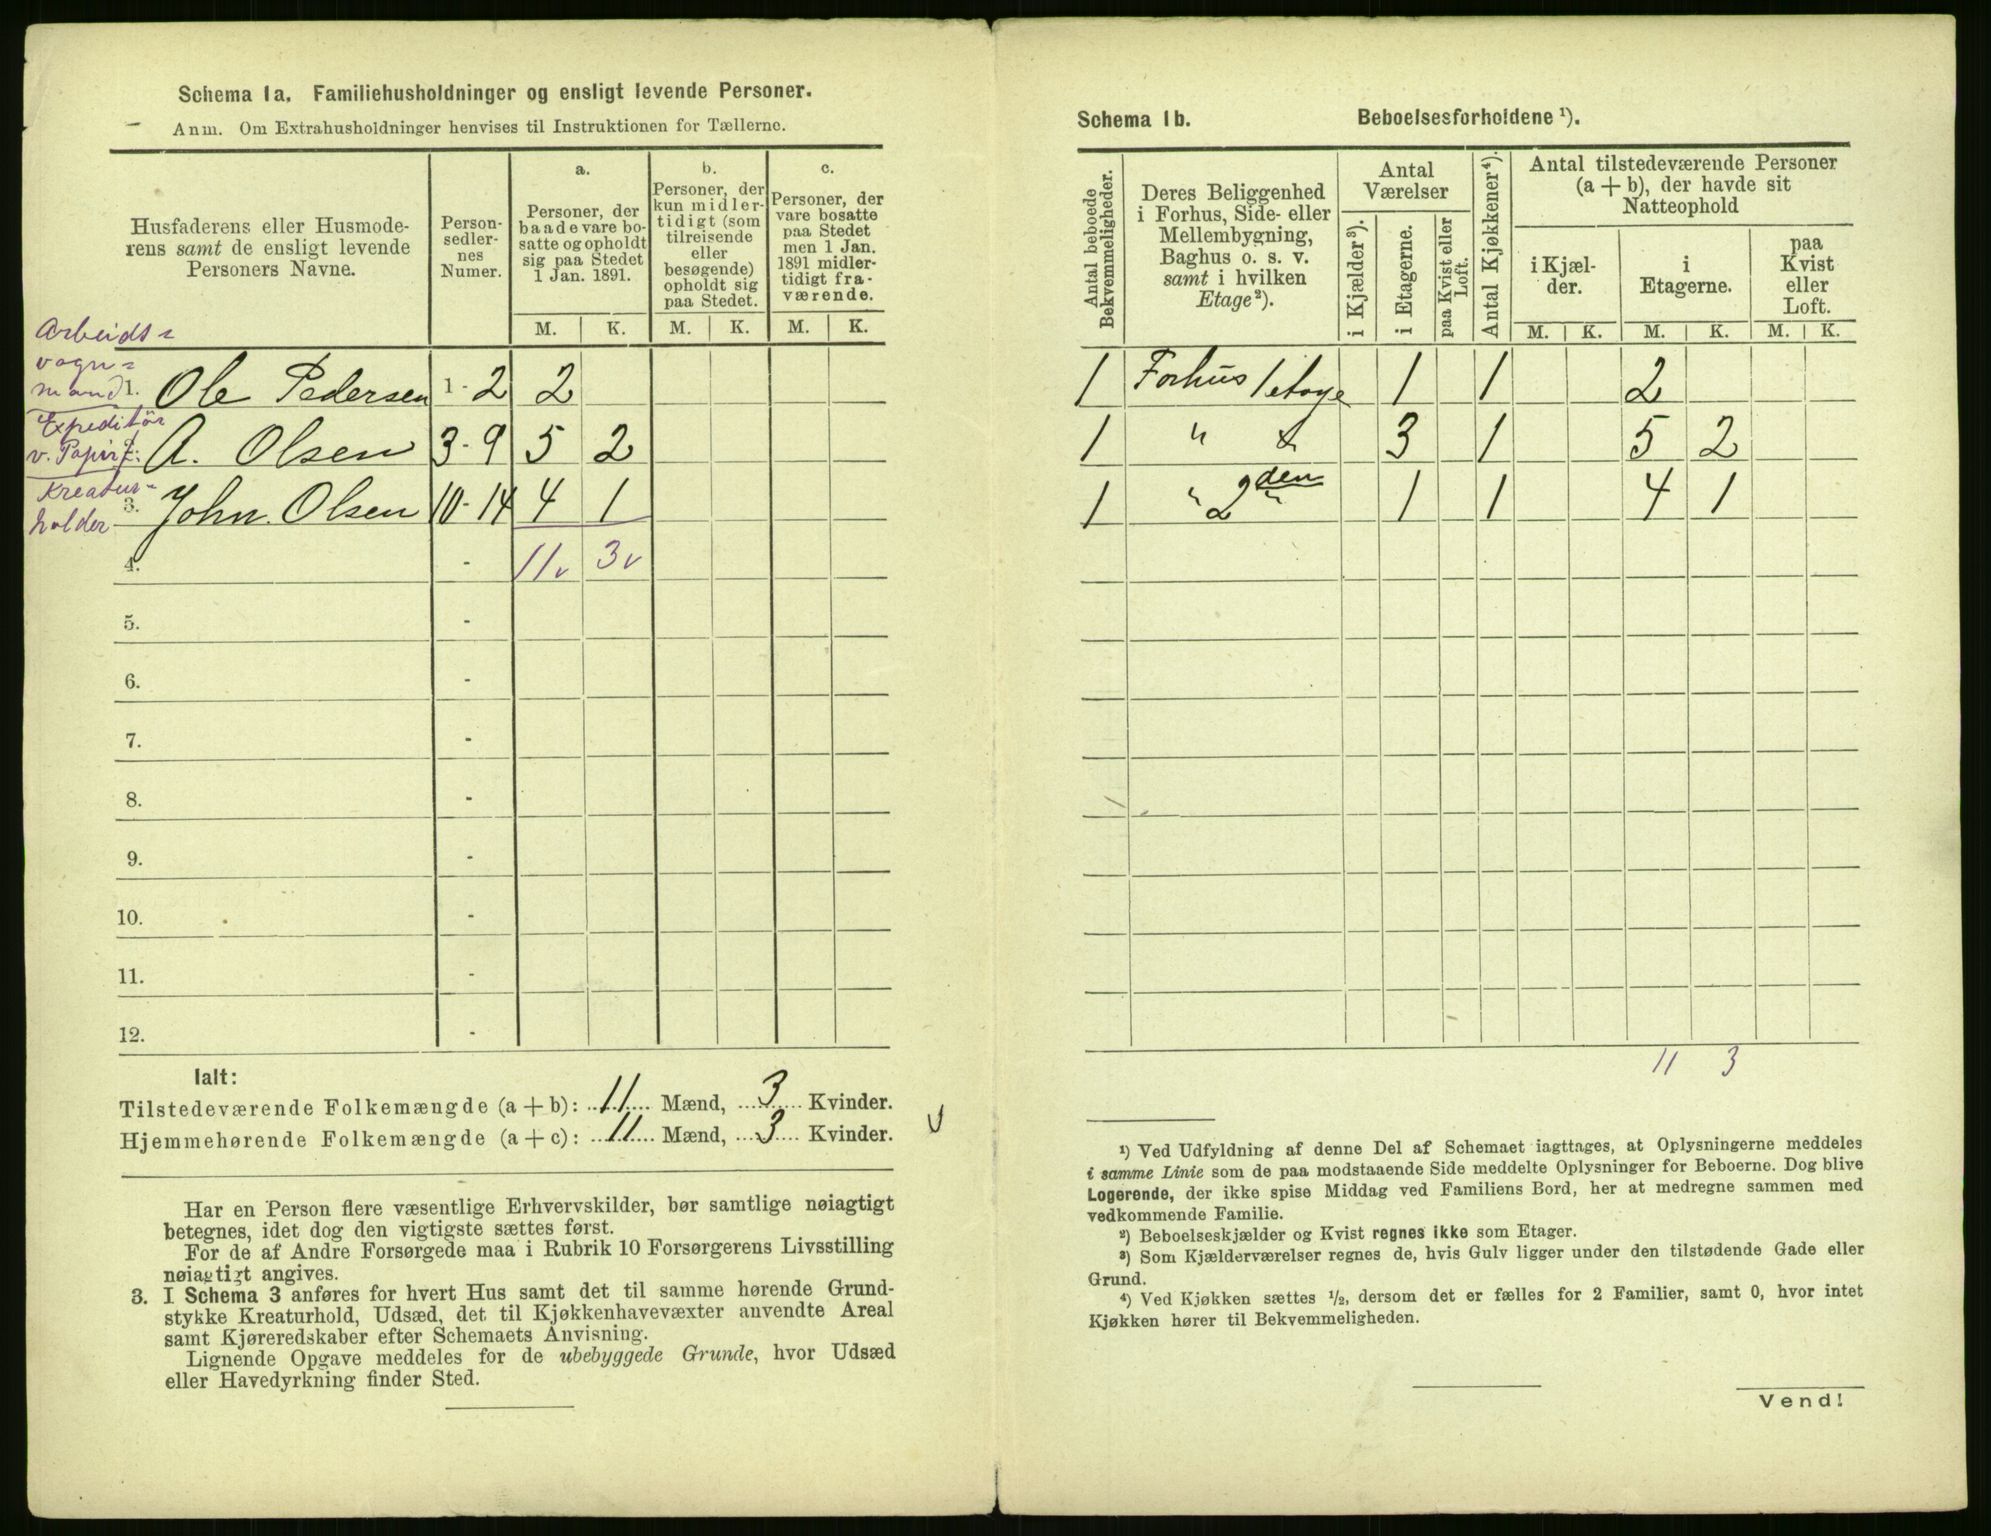 Schema 1a. Familiehusholdninger og ensligt levende Personer.
Anm. Om Extrahusholdninger henvises til Instruktionen for Tællerne.
Husfaderens eller Husmode-
rens samt de ensligt levende
Personers Navne.
Person-
sedler-
nes
Numer.
a.
Personer, der
baade vare bo-
satte og opholdt
sig paa Stedet
1 Jan. 1891.
b.
Personer, der
kun midler-
tidigt (som
tilreisende
eller
besøgende)
opholdt sig
paa Stedet.
c.
Personer, der
vare bosatte
paa Stedet
men 1 Jan.
1891 midler-
tidigt fra-
værende.
M. K. M. K. M. K.
Arbeids=
vogn=
mand 1. Ole Pedersen 1 - 2 2
Expeditör
v. Papirf: A. Olsen 3 - 9 5 2
Kreatur-
holder 3. John. Olsen 10 - 14 4 1
4. - 11 v 3 v
5. -
6. -
7. -
8. -
9. -
10. -
11. -
12. -
Ialt:
Tilstedeværende Folkemængde (a + b): 11 Mænd, 3 Kvinder.
Hjemmehørende Folkemængde (a + c): 11 Mænd, 3 Kvinder. v
Har en Person flere væsentlige Erhvervskilder, bør samtlige nøiagtigt
betegnes, idet dog den vigtigste sættes først.
For de af Andre Forsørgede maa i Rubrik 10 Forsørgerens Livsstilling
nøiagtigt angives.
3. I Schema 3 anføres for hvert Hus samt det til samme hørende Grund-
stykke Kreaturhold, Udsæd, det til Kjøkkenhavevæxter anvendte Areal
samt Kjøreredskaber efter Schemaets Anvisning.
Lignende Opgave meddeles for de ubebyggede Grunde, hvor Udsæd
eller Havedyrkning finder Sted.
Schema 1b. Beboelsesforholdene ¹).
Antal beboede
Bekvemmeligheder.
Deres Beliggenhed
i Forhus, Side- eller
Mellembygning,
Baghus o. s. v.
samt i hvilken
Etage ²).
Antal
Værelser
i Kjælder ³).
i Etagerne.
paa Kvist eller
Loft.
Antal Kjøkkener ⁴).
Antal tilstedeværende Personer
(a + b), der havde sit
Natteophold
i Kjæl-
der.
i
Etagerne.
paa
Kvist
eller
Loft.
M. K. M. K. M. K.
1 Forhus 1 etage 1 1 2
1 " " 3 1 5 2
1 " 2den " 1 1 4 1
11 3
¹) Ved Udfyldning af denne Del af Schemaet iagttages, at Oplysningerne meddeles
i samme Linie som de paa modstaaende Side meddelte Oplysninger for Beboerne. Dog blive
Logerende, der ikke spise Middag ved Familiens Bord, her at medregne sammen med
vedkommende Familie.
²) Beboelseskjælder og Kvist regnes ikke som Etager.
³) Som Kjælderværelser regnes de, hvis Gulv ligger under den tilstødende Gade eller
Grund.
⁴) Ved Kjøkken sættes ½, dersom det er fælles for 2 Familier, samt 0, hvor intet
Kjøkken hører til Bekvemmeligheden.
Vend!